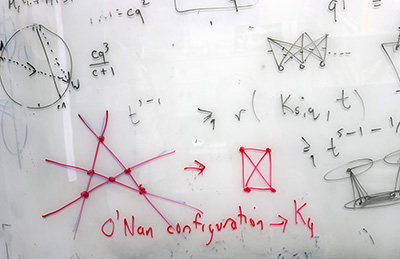 = cq²
cq³
c+1
t^{s-1} ≥ r( K_{s,q}, t )
≥ t^{s-1-1
O'Nan configuration → K₄